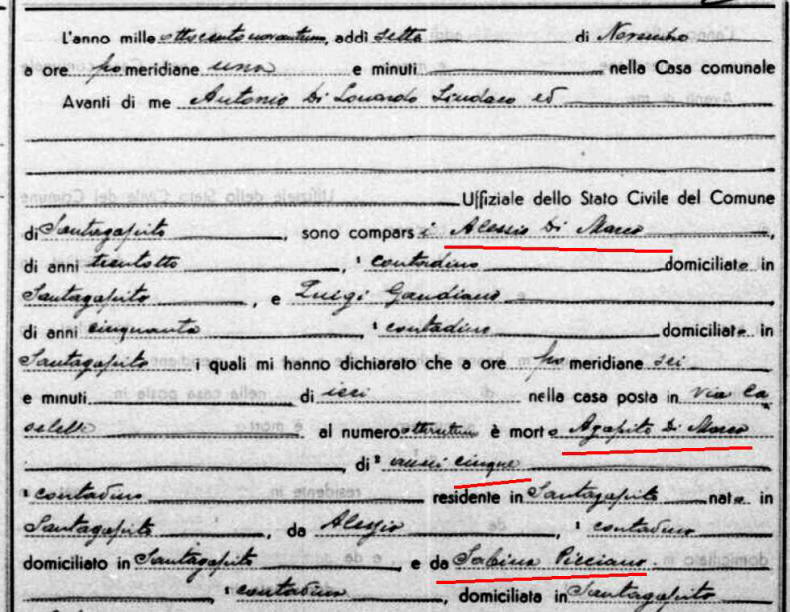 L'anno mille ottocentonovantuno, addì sette di Novembre
a ore pomeridiane una e minuti nella Casa comunale
Avanti di me Antonio Di Lonardo Sindaco ed
Uffiziale dello Stato Civile del Comune
di Santagapito, sono comparsi Alessio Di Marco,
di anni trentotto, contadino domiciliato in
Santagapito, e Luigi Gaudiano
di anni cinquanta, contadino domiciliato in
Santagapito i quali mi hanno dichiarato che a ore pomeridiane sei
e minuti di ieri nella casa posta in via Ca
selle al numero è morto Agapito Di Marco
, di anni cinque
contadino residente in Santagapito nato in
Santagapito, da Alessio, contadino
domiciliato in Santagapito, e da Sabina Picciano
, contadina, domiciliata in Santagapito